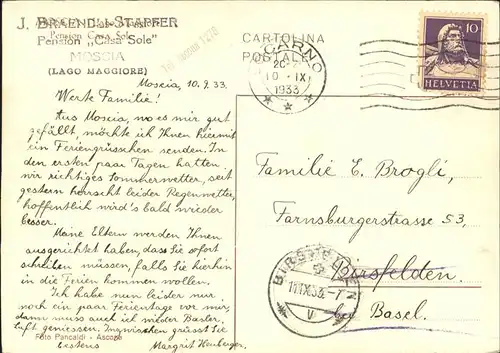 J. BRAENDLI-STAFFER
Pension „Casa Sole"
MOSCIA
(LAGO MAGGIORE)
Tel. Locarno 1276
CARTOLINA
POSTALE
LOCARNO
10. IX
1933
10
HELVETIA
Moscia, 10.9.33.
Werte Familie!
Aus Moscia, wo es mir gut
gefällt, möchte ich Ihnen hiermit
ein Feriengrüsschen senden. In
den ersten paar Tagen hatten
wir richtiges Sommerwetter, seit
gestern herrscht leider Regenwetter,
hoffentlich wird's bald wieder
besser.
Meine Eltern werden Ihnen
ausgerichtet haben, dass Sie sofort
schreiben müssen, falls Sie hierhin
in die Ferien kommen wollen.
Ich habe nun leider nur
noch ein paar Ferientage vor mir,
dann muss auch ich wieder Basler-
Luft geniessen. Inzwischen grüsst Sie
bestens Margrit
Foto Pancaldi - Ascona
Familie E. Brogli,
Farnsburgerstrasse 53,
Birsfelden.
bei Basel.
BIRSFELDEN
11.IX.33.-7
V